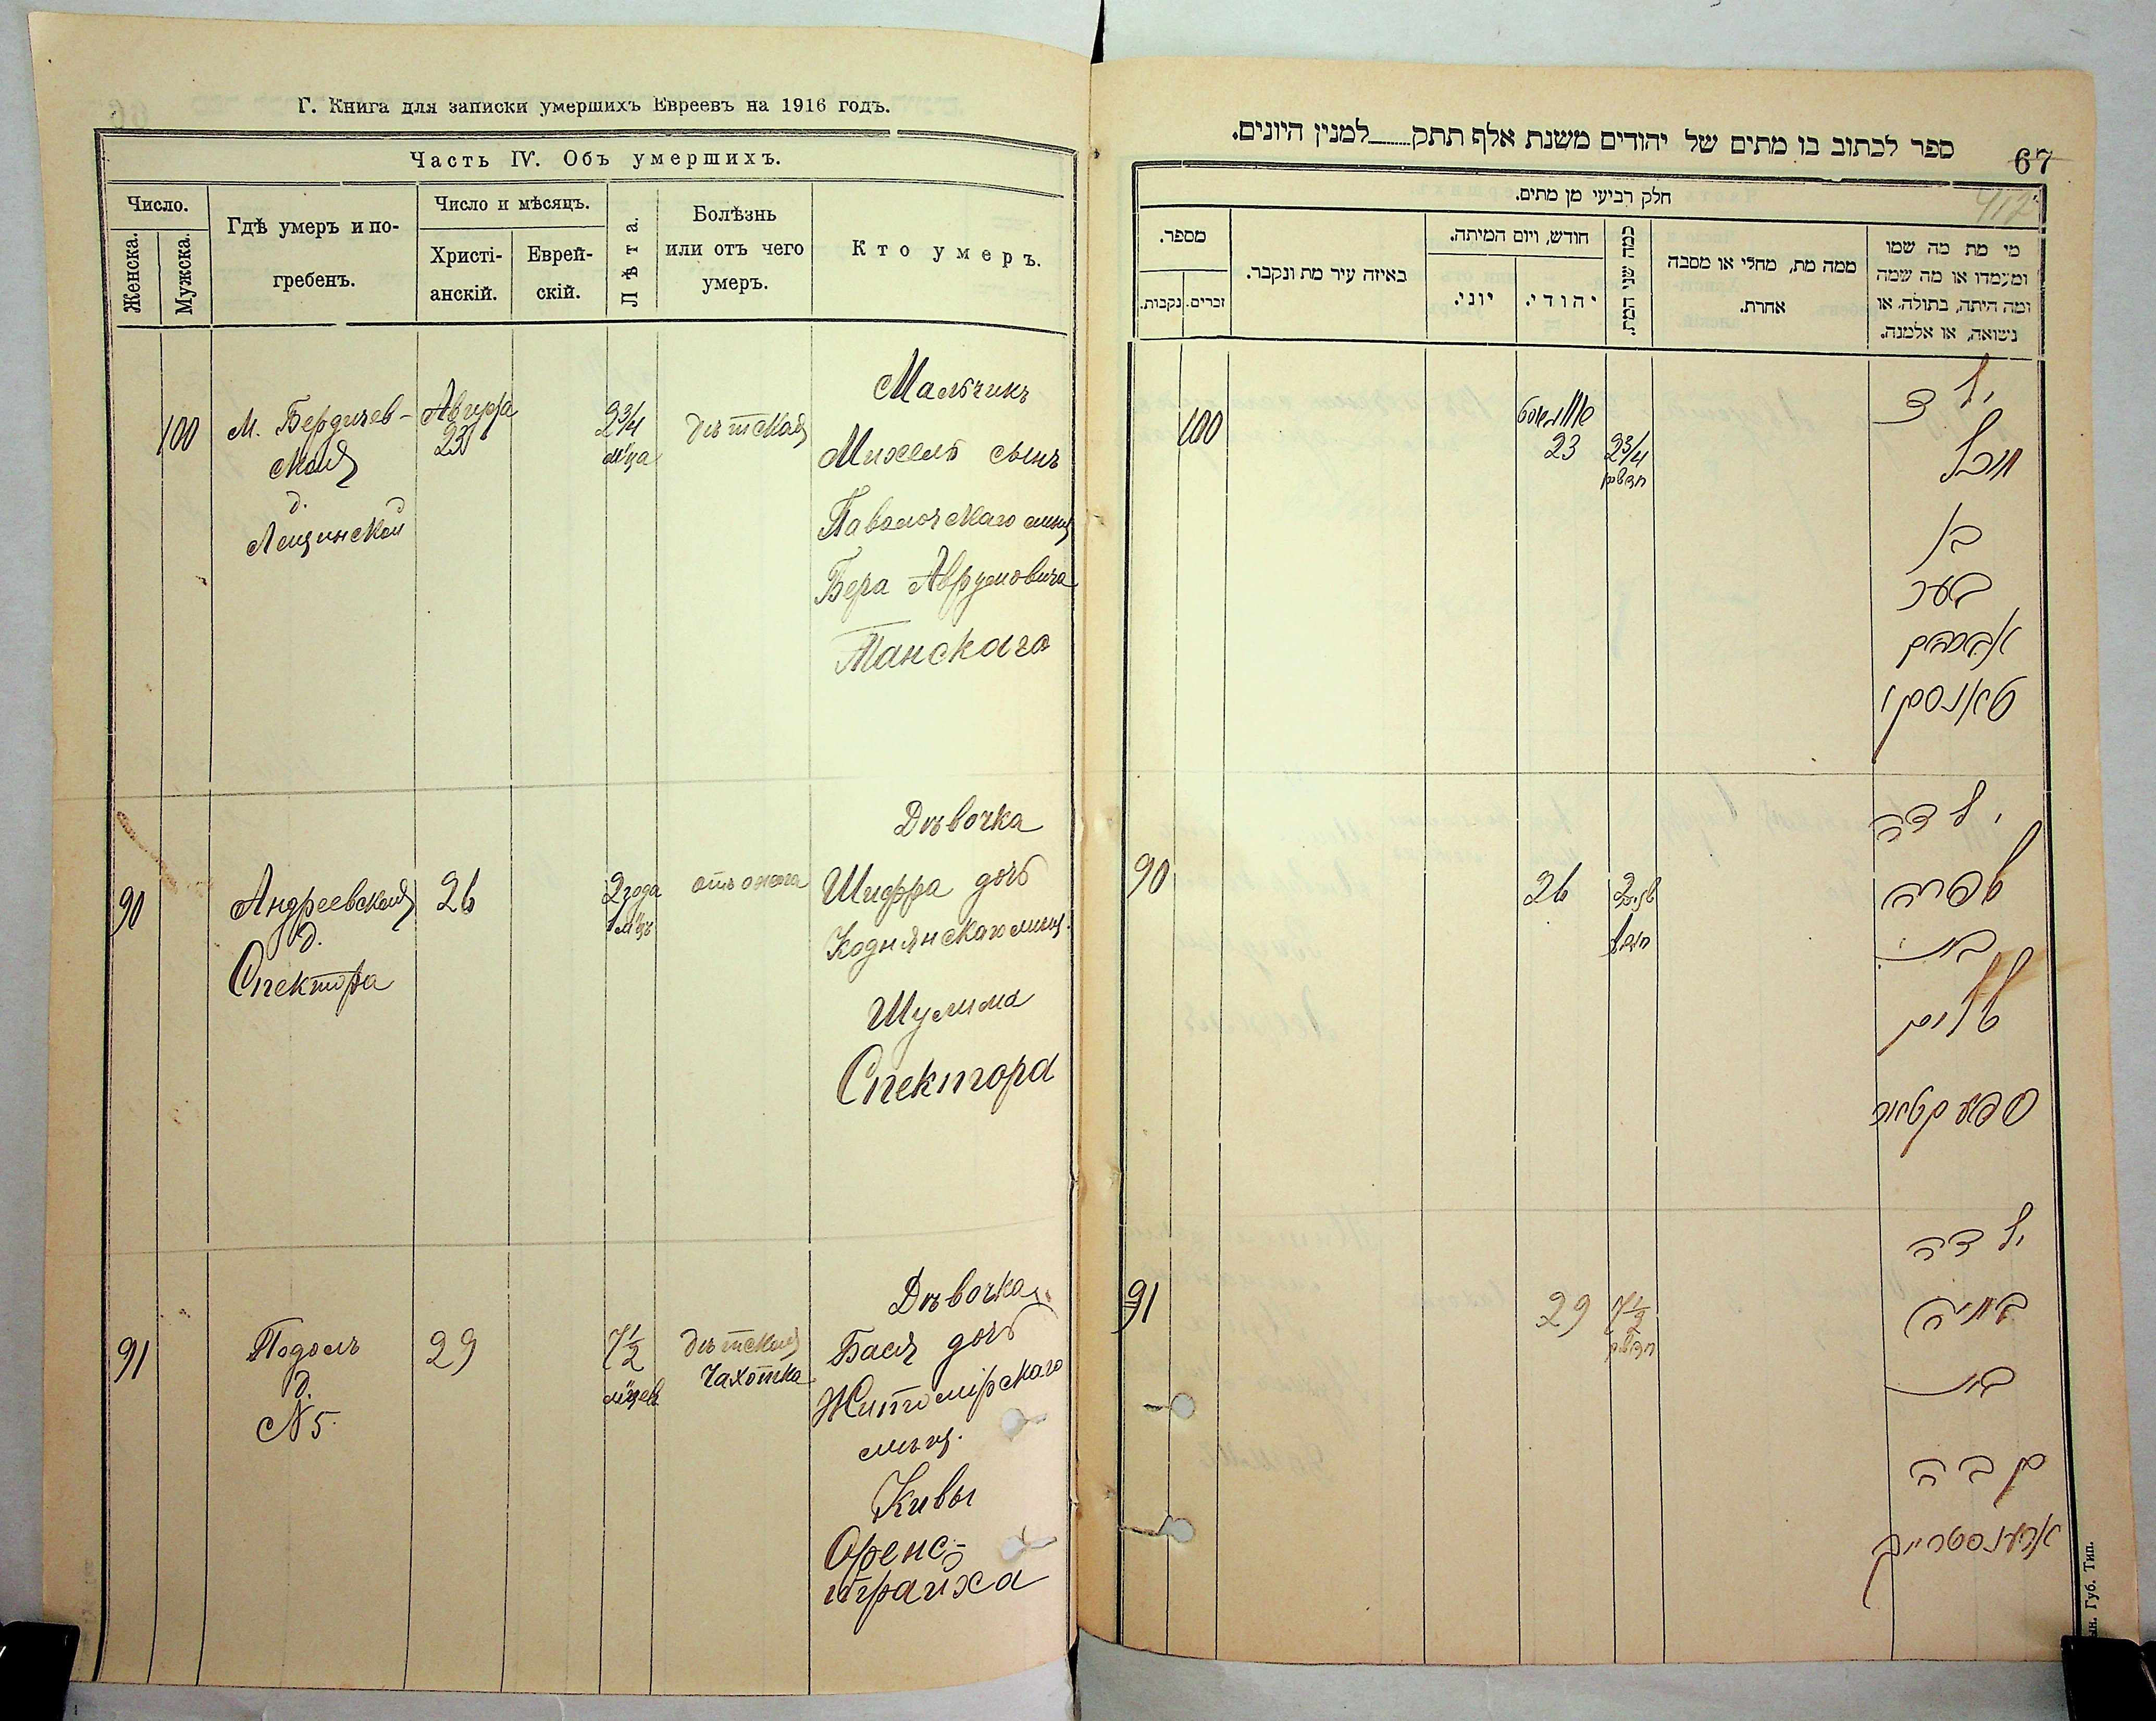 Г. Книга для записки умершихъ Евреевъ на 1916 годъ.
Часть IV. Объ умершихъ.
Число.
Женска.
Мужска.
Гдѣ умеръ и по-
гребенъ.
Число и мѣсяцъ.
Христі-
анскій.
Еврей-
скій.
Лѣта.
Болѣзнь
или отъ чего
умеръ.
Кто умеръ.
100
М. Бердичев-
ская
д.
Лещинской
Августа
23
2 3/4
м-ца
дѣтская
Мальчикъ
Михель сынъ
Паволочскаго мѣщ
Бера Аврумовича
Танскаго
90
Андреевская
д.
Спектора
26
2 года
1 м-цъ
отъ ожога
Дѣвочка
Шифра дочь
Коднянскаго мѣщ.
Шулима
Спектора
91
Подолъ
д.
№ 5.
29
7 1/2
м-цев
дѣтская
Чахотка
Дѣвочка
Бася дочь
Житомірскаго
мѣщ.
Кивы
Оренс-
трайха
ספר לכתוב בו מתים של יהודים משנת אלף תתק למנין היונים.
67
חלק רביעי מן מתים.
מספר.
נקבות.
זכרים.
באיזה עיר מת ונקבר.
חודש, ויום המיתה.
יוני.
יהודי.
כמה שני המת.
ממה מת, מחלי או מסבה
אחרת.
מי מת מה שמו
ומעמדו או מה שמה
ומה היתה, בתולה, או
נשואה, או אלמנה.
100
אווגוסט
23
2 3/4
חדשים
ילד
מיכל
בן
בער
אברהם
טאנסקי
90
26
2 שנים
1 חודש
ילדה
שפרה
בת
שלום
ספעקטאר
91
29
7 1/2
חדשים
ילדה
באסיה
בת
קבה
ארענסטרייך
ын. Губ. Тип.